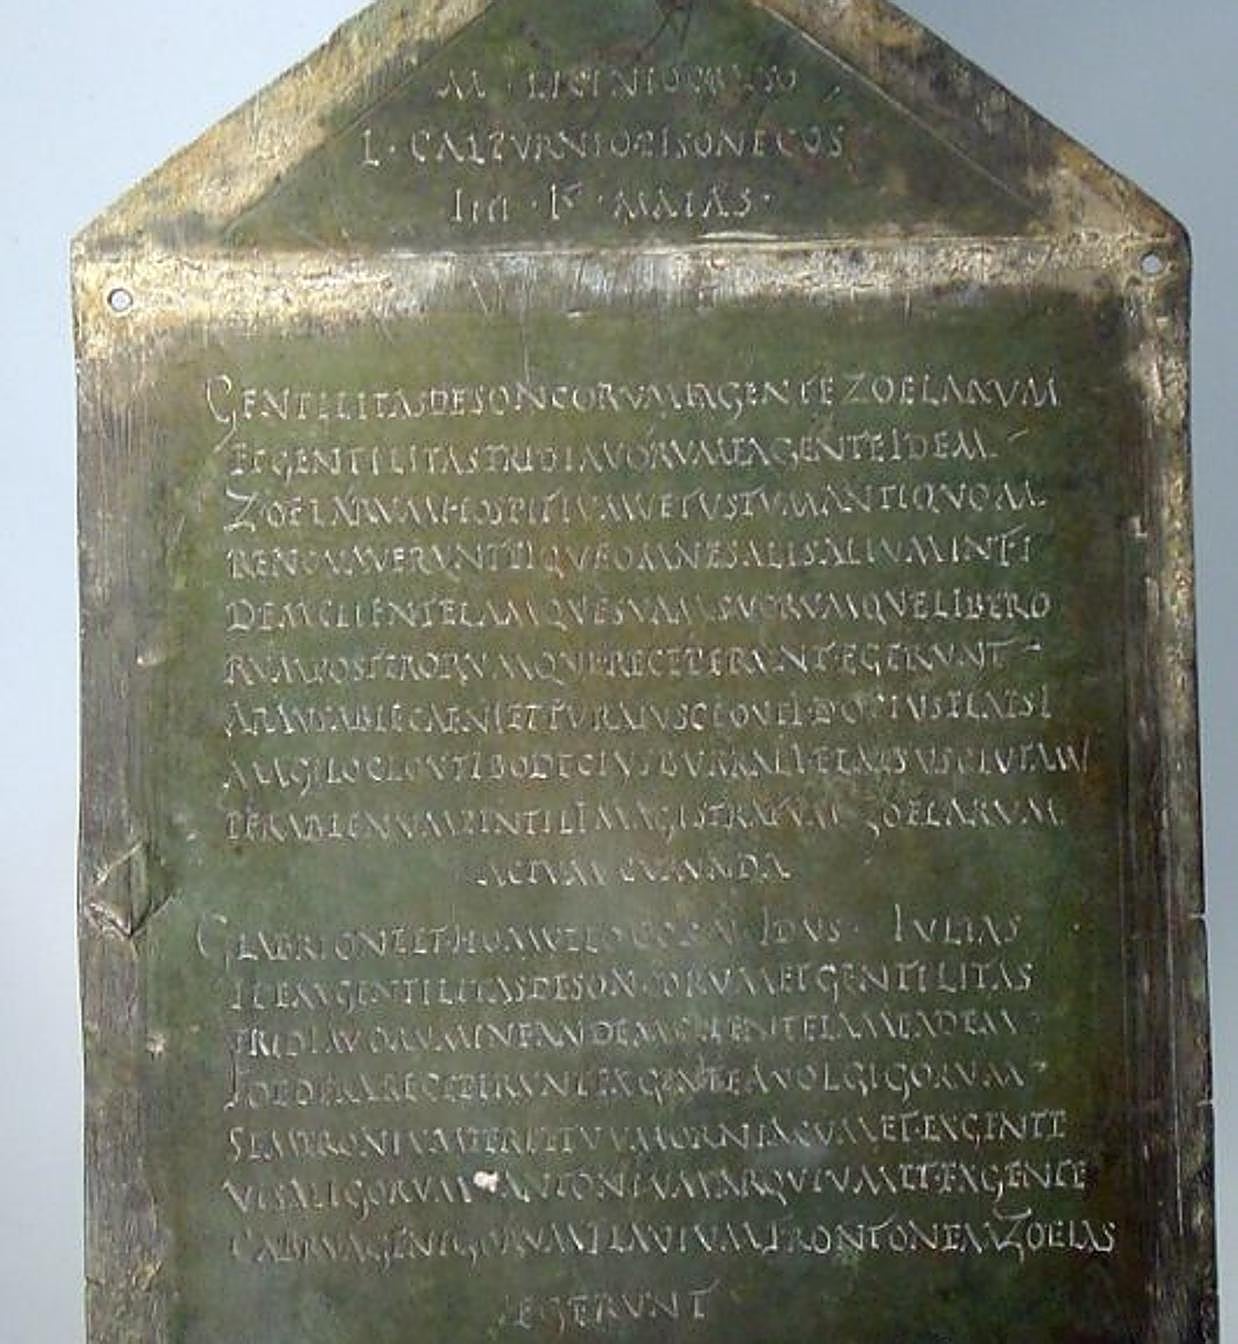 M · LICINIO CRASSO
L · CALPVRNIO PISONE COS
IIII · K · MAIAS ·
GENTILITAS DESONCORVM EX GENTE ZOELARVM
ET GENTILITAS TRIDIAVORVM EX GENTE IDEM
ZOELARVM HOSPITIVM VETVSTVM ANTIQVOM
RENOVAVERVNT EIQVE OMNES ALIS ALIVM IN FI
DEM CLIENTELAMQVE SVAM SVORVMQVE LIBERO
RVM POSTERORVMQVE RECEPERVNT EGERVNT
ARAVSA BLECAENI ET TVRAIVS CLOVTI DOCIVS ELAESI
MAGILO CLOVTI BODECIVS BVRRALI ELAESVS CLVTAMI
PER ABIENVM PENTILI MAGISTRATVM ZOELARVM
ACTVM CVRVNDA
GLABRIONE ET HOMVLLO COS V IDVS · IVLIAS
IDEM GENTILITAS DESONCORVM ET GENTILITAS
TRIDIAVORVM IN EANDEM CLIENTELAM EADEM
FOEDERA RECEPERVNT EX GENTE AVOLGIGORVM
SEMPRONIVM PERPETVVM ORNIACVM ET EX GENTE
VISALIGORVM ANTONIVM ARQVIVM ET EX GENTE
CABRVAGENIGORVM FLAVIVM FRONTONEM ZOELAS
EGERVNT